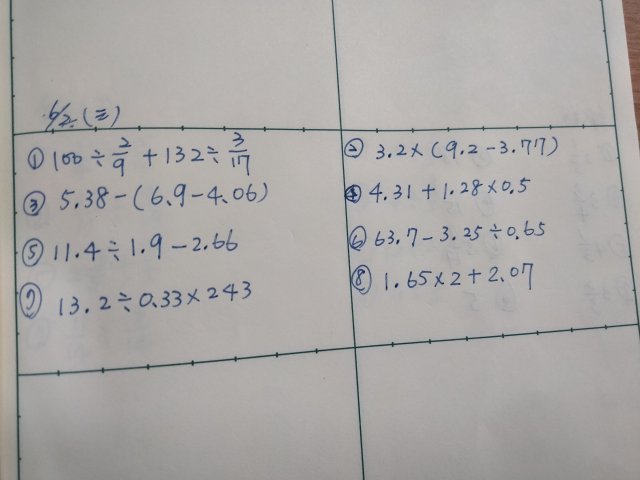 6/2 (三)
① 100÷2/9+132÷3/17
② 3.2×(9.2-3.77)
③ 5.38-(6.9-4.06)
④ 4.31+1.28×0.5
⑤ 11.4÷1.9-2.66
⑥ 63.7-3.25÷0.65
⑦ 13.2÷0.33×243
⑧ 1.65×2+2.07